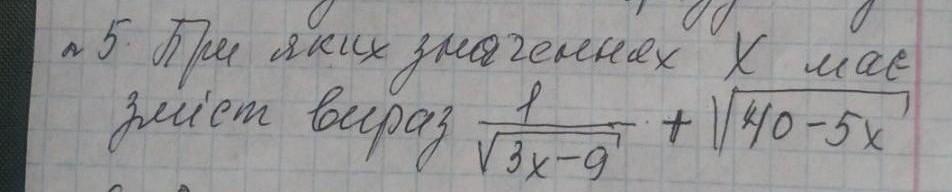 №5. При яких значеннях X має
зміст вираз 1/√(3x-9) + √(40-5x)